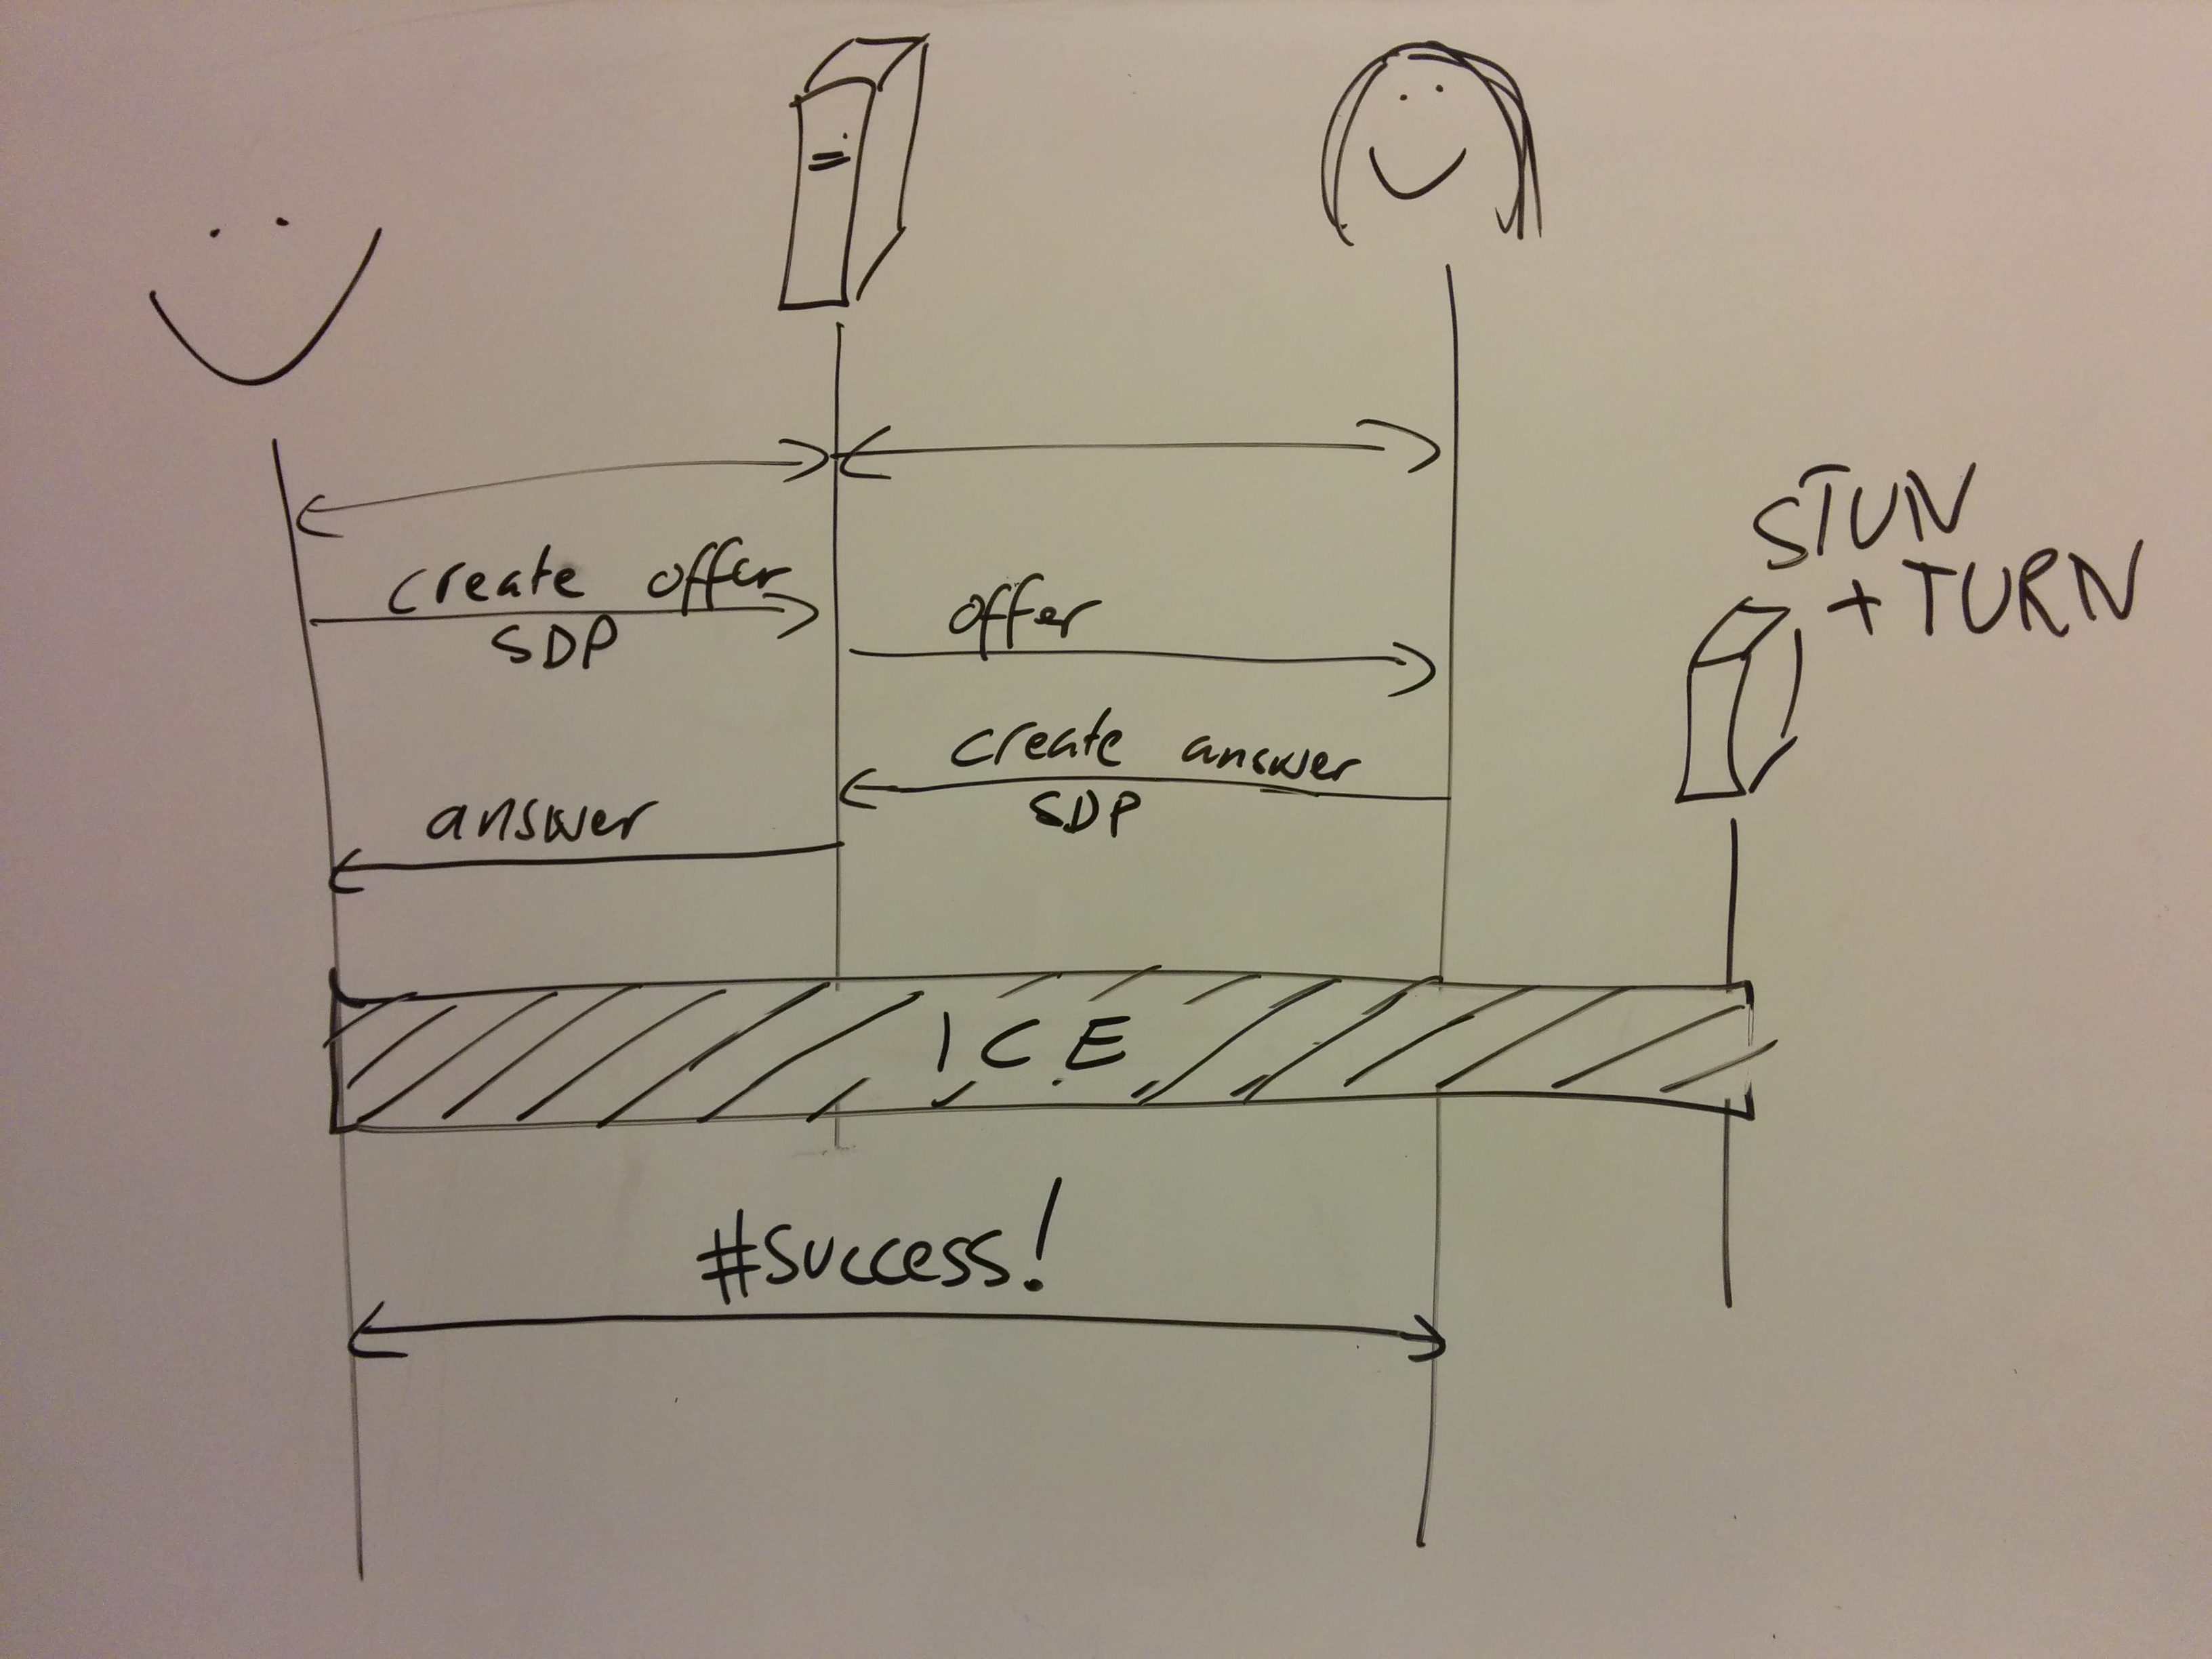 STUN
+ TURN
create offer
SDP
offer
create answer
SDP
answer
ICE
#success!